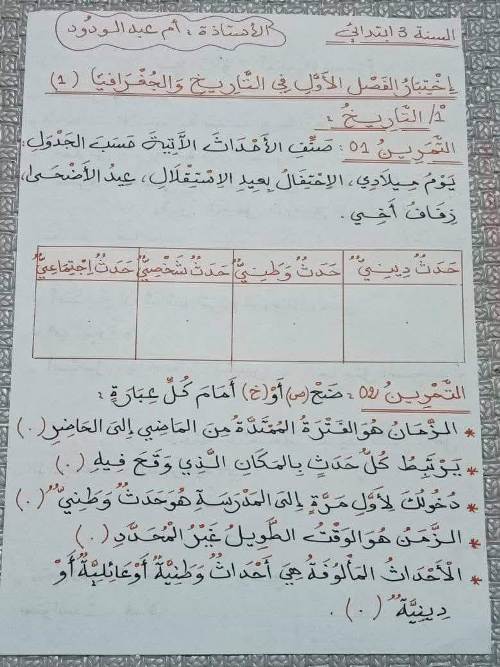 السنة 3 ابتدائي
الأستاذة : أم عبد الودود
إِخْتِبَارُ الفَصْلِ الأَوَّلِ فِي التَّارِيخِ وَالجُغْرَافِيَا (1)
1/ التَّارِيخُ :
التَّمْرِينُ 01 : صَنِّفِ الأَحْدَاثَ الآتِيَةَ حَسَبَ الجَدْوَلِ :
يَوْمُ مِيلَادِي، الاِحْتِفَالُ بِعِيدِ الاِسْتِقْلَالِ، عِيدُ الأَضْحَى،
زِفَافُ أَخِي .
حَدَثٌ دِينِيٌّ حَدَثٌ وَطَنِيٌّ حَدَثٌ شَخْصِيٌّ حَدَثٌ اِجْتِمَاعِيٌّ
التَّمْرِينُ 02 : ضَعْ (ص) أَوْ (خ) أَمَامَ كُلِّ عِبَارَةٍ :
* الزَّمَانُ هُوَ الفَتْرَةُ المُمْتَدَّةُ مِنَ المَاضِي إِلَى الحَاضِرِ (.)
* يَرْتَبِطُ كُلُّ حَدَثٍ بِالمَكَانِ الَّذِي وَقَعَ فِيهِ (.)
* دُخُولُكَ لِأَوَّلِ مَرَّةٍ إِلَى المَدْرَسَةِ هُوَ حَدَثٌ وَطَنِيٌّ (.)
* الزَّمَنُ هُوَ الوَقْتُ الطَّوِيلُ غَيْرُ المُحَدَّدِ (.)
* الأَحْدَاثُ المَأْلُوفَةُ هِيَ أَحْدَاثٌ وَطَنِيَّةٌ أَوْ عَائِلِيَّةٌ أَوْ
دِينِيَّةٌ (.) .